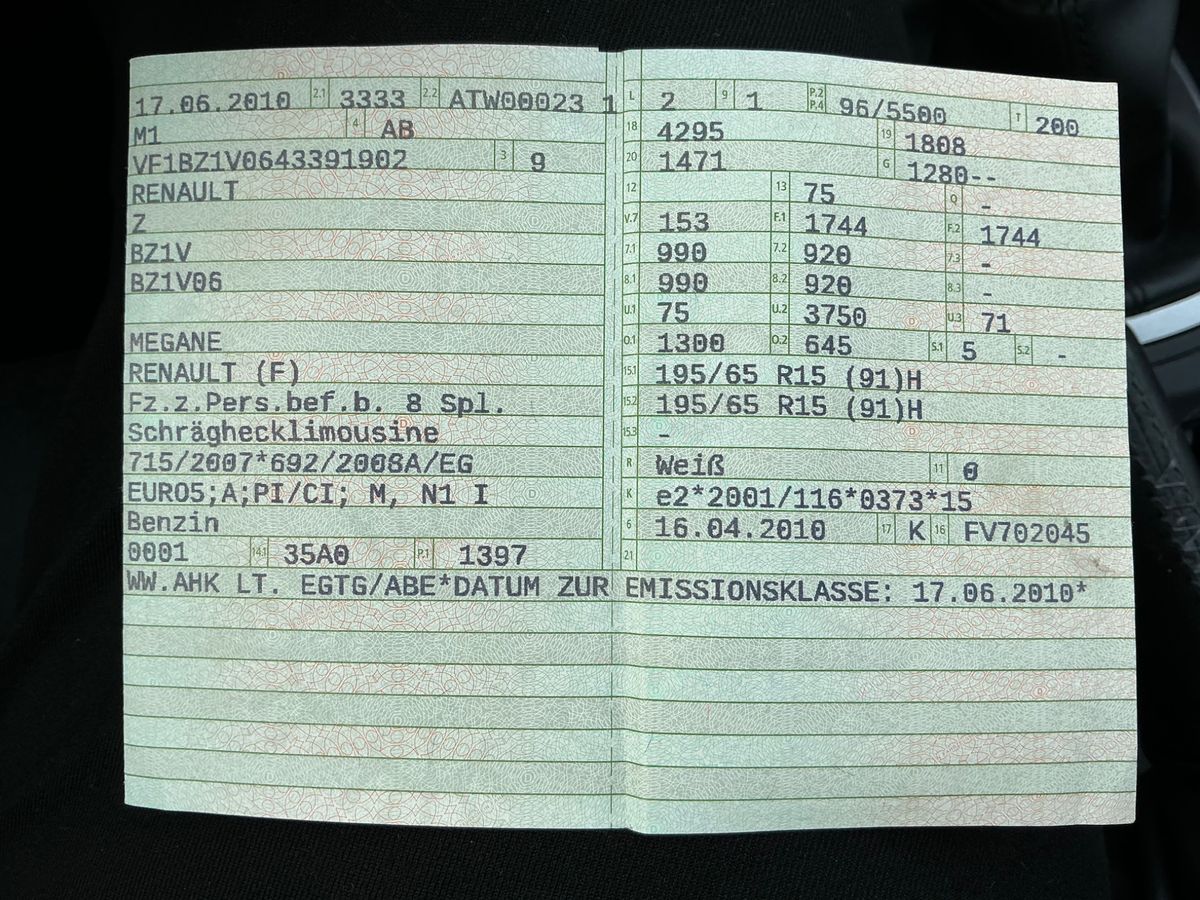 17.06.2010 2.1 3333 2.2 ATW00023 1
M1 4 AB
VF1BZ1V0643391902 3 9
RENAULT
Z
BZ1V
BZ1V06
MEGANE
RENAULT (F)
Fz.z.Pers.bef.b. 8 Spl.
Schräghecklimousine
715/2007*692/2008A/EG
EURO5;A;PI/CI; M, N1 I
Benzin
0001 14.1 35A0 P.1 1397
L 2 9 1 P.2 P.4 96/5500 T 200
18 4295 19 1808
20 1471 G 1280--
12 13 75 Q -
V.7 153 F.1 1744 F.2 1744
7.1 990 7.2 920 7.3 -
8.1 990 8.2 920 8.3 -
U.1 75 U.2 3750 U.3 71
O.1 1300 O.2 645 S.1 5 S.2 -
15.1 195/65 R15 (91)H
15.2 195/65 R15 (91)H
15.3 -
R Weiß 11 0
K e2*2001/116*0373*15
6 16.04.2010 17 K 16 FV702045
21
WW.AHK LT. EGTG/ABE*DATUM ZUR EMISSIONSKLASSE: 17.06.2010*